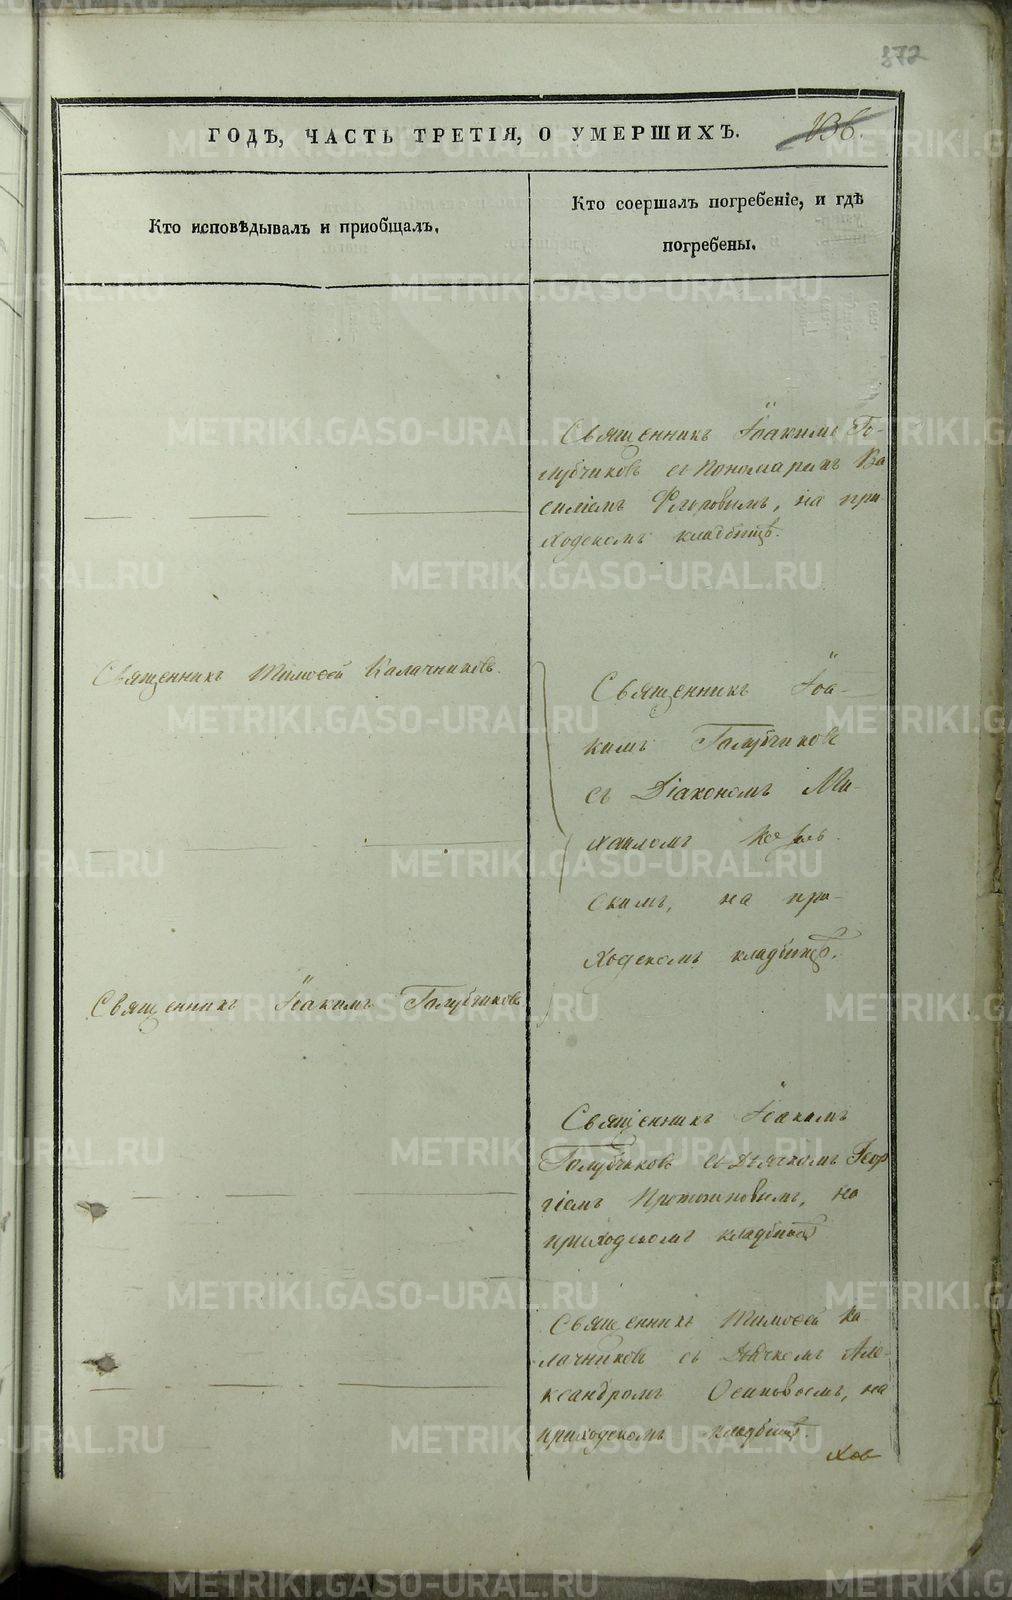 372
ГОДѢ, ЧАСТЬ ТРЕТІЯ, О УМЕРШИХЪ.
136.
Кто исповѣдывалъ и приобщалъ.
Кто соершалъ погребеніе, и гдѣ
погребены.
Священникъ Іоакимъ Го-
лубчиковъ съ Пономаремъ Ва
силіемъ Флоровымъ, на при-
ходскомъ кладбищѣ.
Священникъ Тимоѳей Калачниковъ.
Священникъ Іоа-
кимъ Голубчиковъ
съ Діакономъ Ми-
хаиломъ
скимъ, на при-
ходскомъ кладбищѣ.
Священникъ Іоакимъ Голубчиковъ
Священникъ Іоакимъ
Голубчиковъ съ Дьячкомъ Геор
гіемъ на
приходскомъ кладбищѣ
Священникъ Тимоѳей Ка-
лачниковъ съ Дьячкомъ Але-
ксандромъ Осиповымъ, на
приходскомъ кладбищѣ.
METRIKI.GASO-URAL.RU